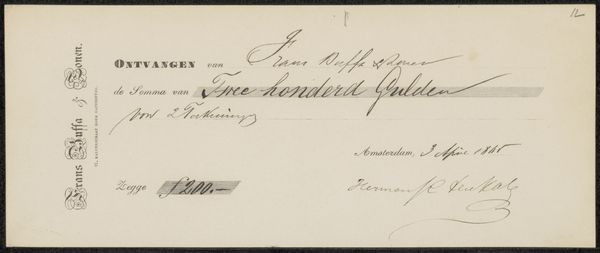 12
Frans Buffa & Zonen.
ONTVANGEN van Frans Buffa & Zonen
de Somma van Twee honderd Gulden
voor 2 Teekeningen
Amsterdam, 3 April 18
Zegge ƒ200.-
Herman ten Kate